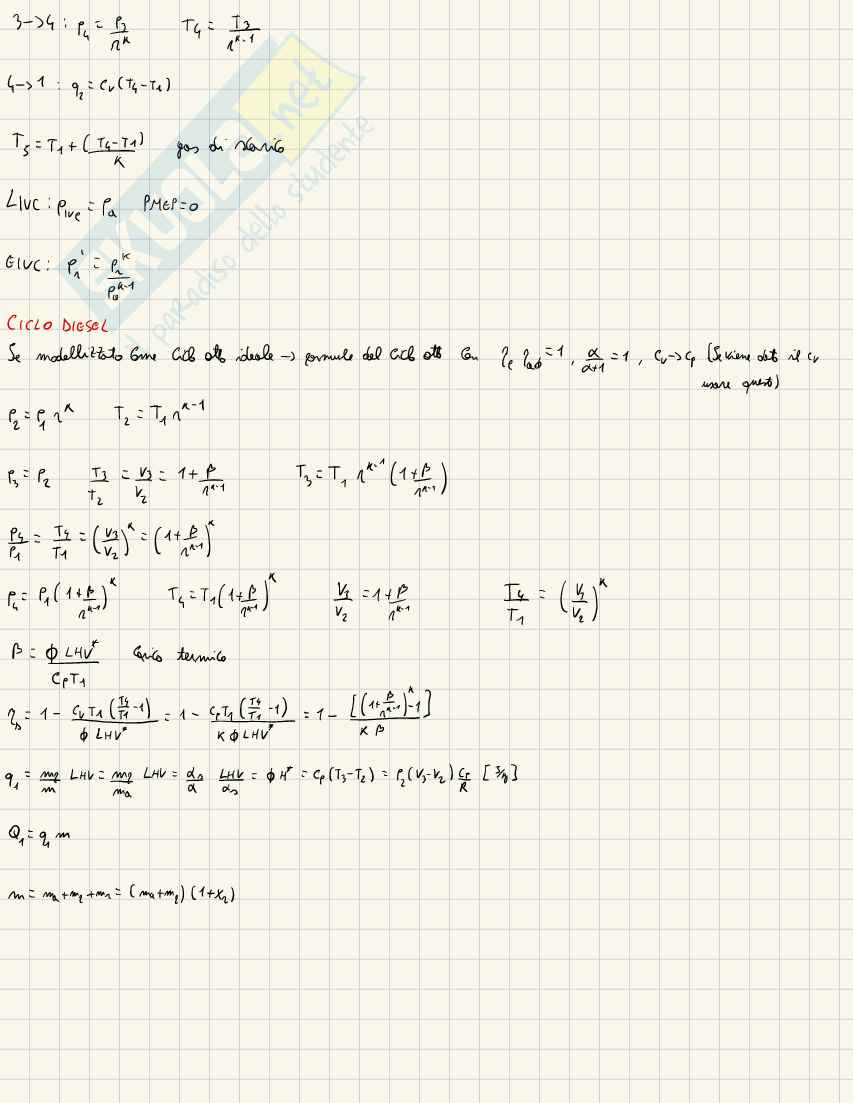 3->4 : p₄ = p₃/r^k    T₄ = T₃/r^(k-1)
4->1 : q₂ = c_v(T₄-T₁)
T₅ = T₁ + (T₄-T₁)/k    gas di scarico
LIVC : p_ive = p_a    PMEP=0
EIVC : p₁' = p₁^k/p_a^(k-1)
CICLO DIESEL
Se modellizzato come ciclo otto ideale -> formule del ciclo otto con =1 , α/(α+1) = 1 , c_v->c_p (Se viene dato il c_v
usare questo)
p₂ = p₁ r^k    T₂ = T₁ r^(k-1)
p₃ = p₂    T₃/T₂ = V₃/V₂ = 1 + β/r^(k-1)    T₃ = T₁ r^(k-1) (1 + β/r^(k-1))
p₄/p₁ = T₄/T₁ = (V₃/V₂)^k = (1 + β/r^(k-1))^k
p₄ = p₁(1 + β/r^(k-1))^k    T₄ = T₁(1 + β/r^(k-1))^k    V₃/V₂ = 1 + β/r^(k-1)    T₄/T₁ = (V₃/V₂)^k
β = ϕ LHV*/(c_p T₁)    carico termico
= 1 - c_v T₁(T₄/T₁ -1)/(ϕ LHV*) = 1 - c_p T₁(T₄/T₁ -1)/(k ϕ LHV*) = 1 - [(1+β/r^(k-1))^k -1]/(k β)
q₁ = LHV = LHV = α_s/α LHV/α_s = ϕ H* = c_p(T₃-T₂) = p₂(V₃-V₂) c_p/R
Q₁ = q₁ m
m = = (1+x_r)
SKUOLA.net
il paradiso dello studente